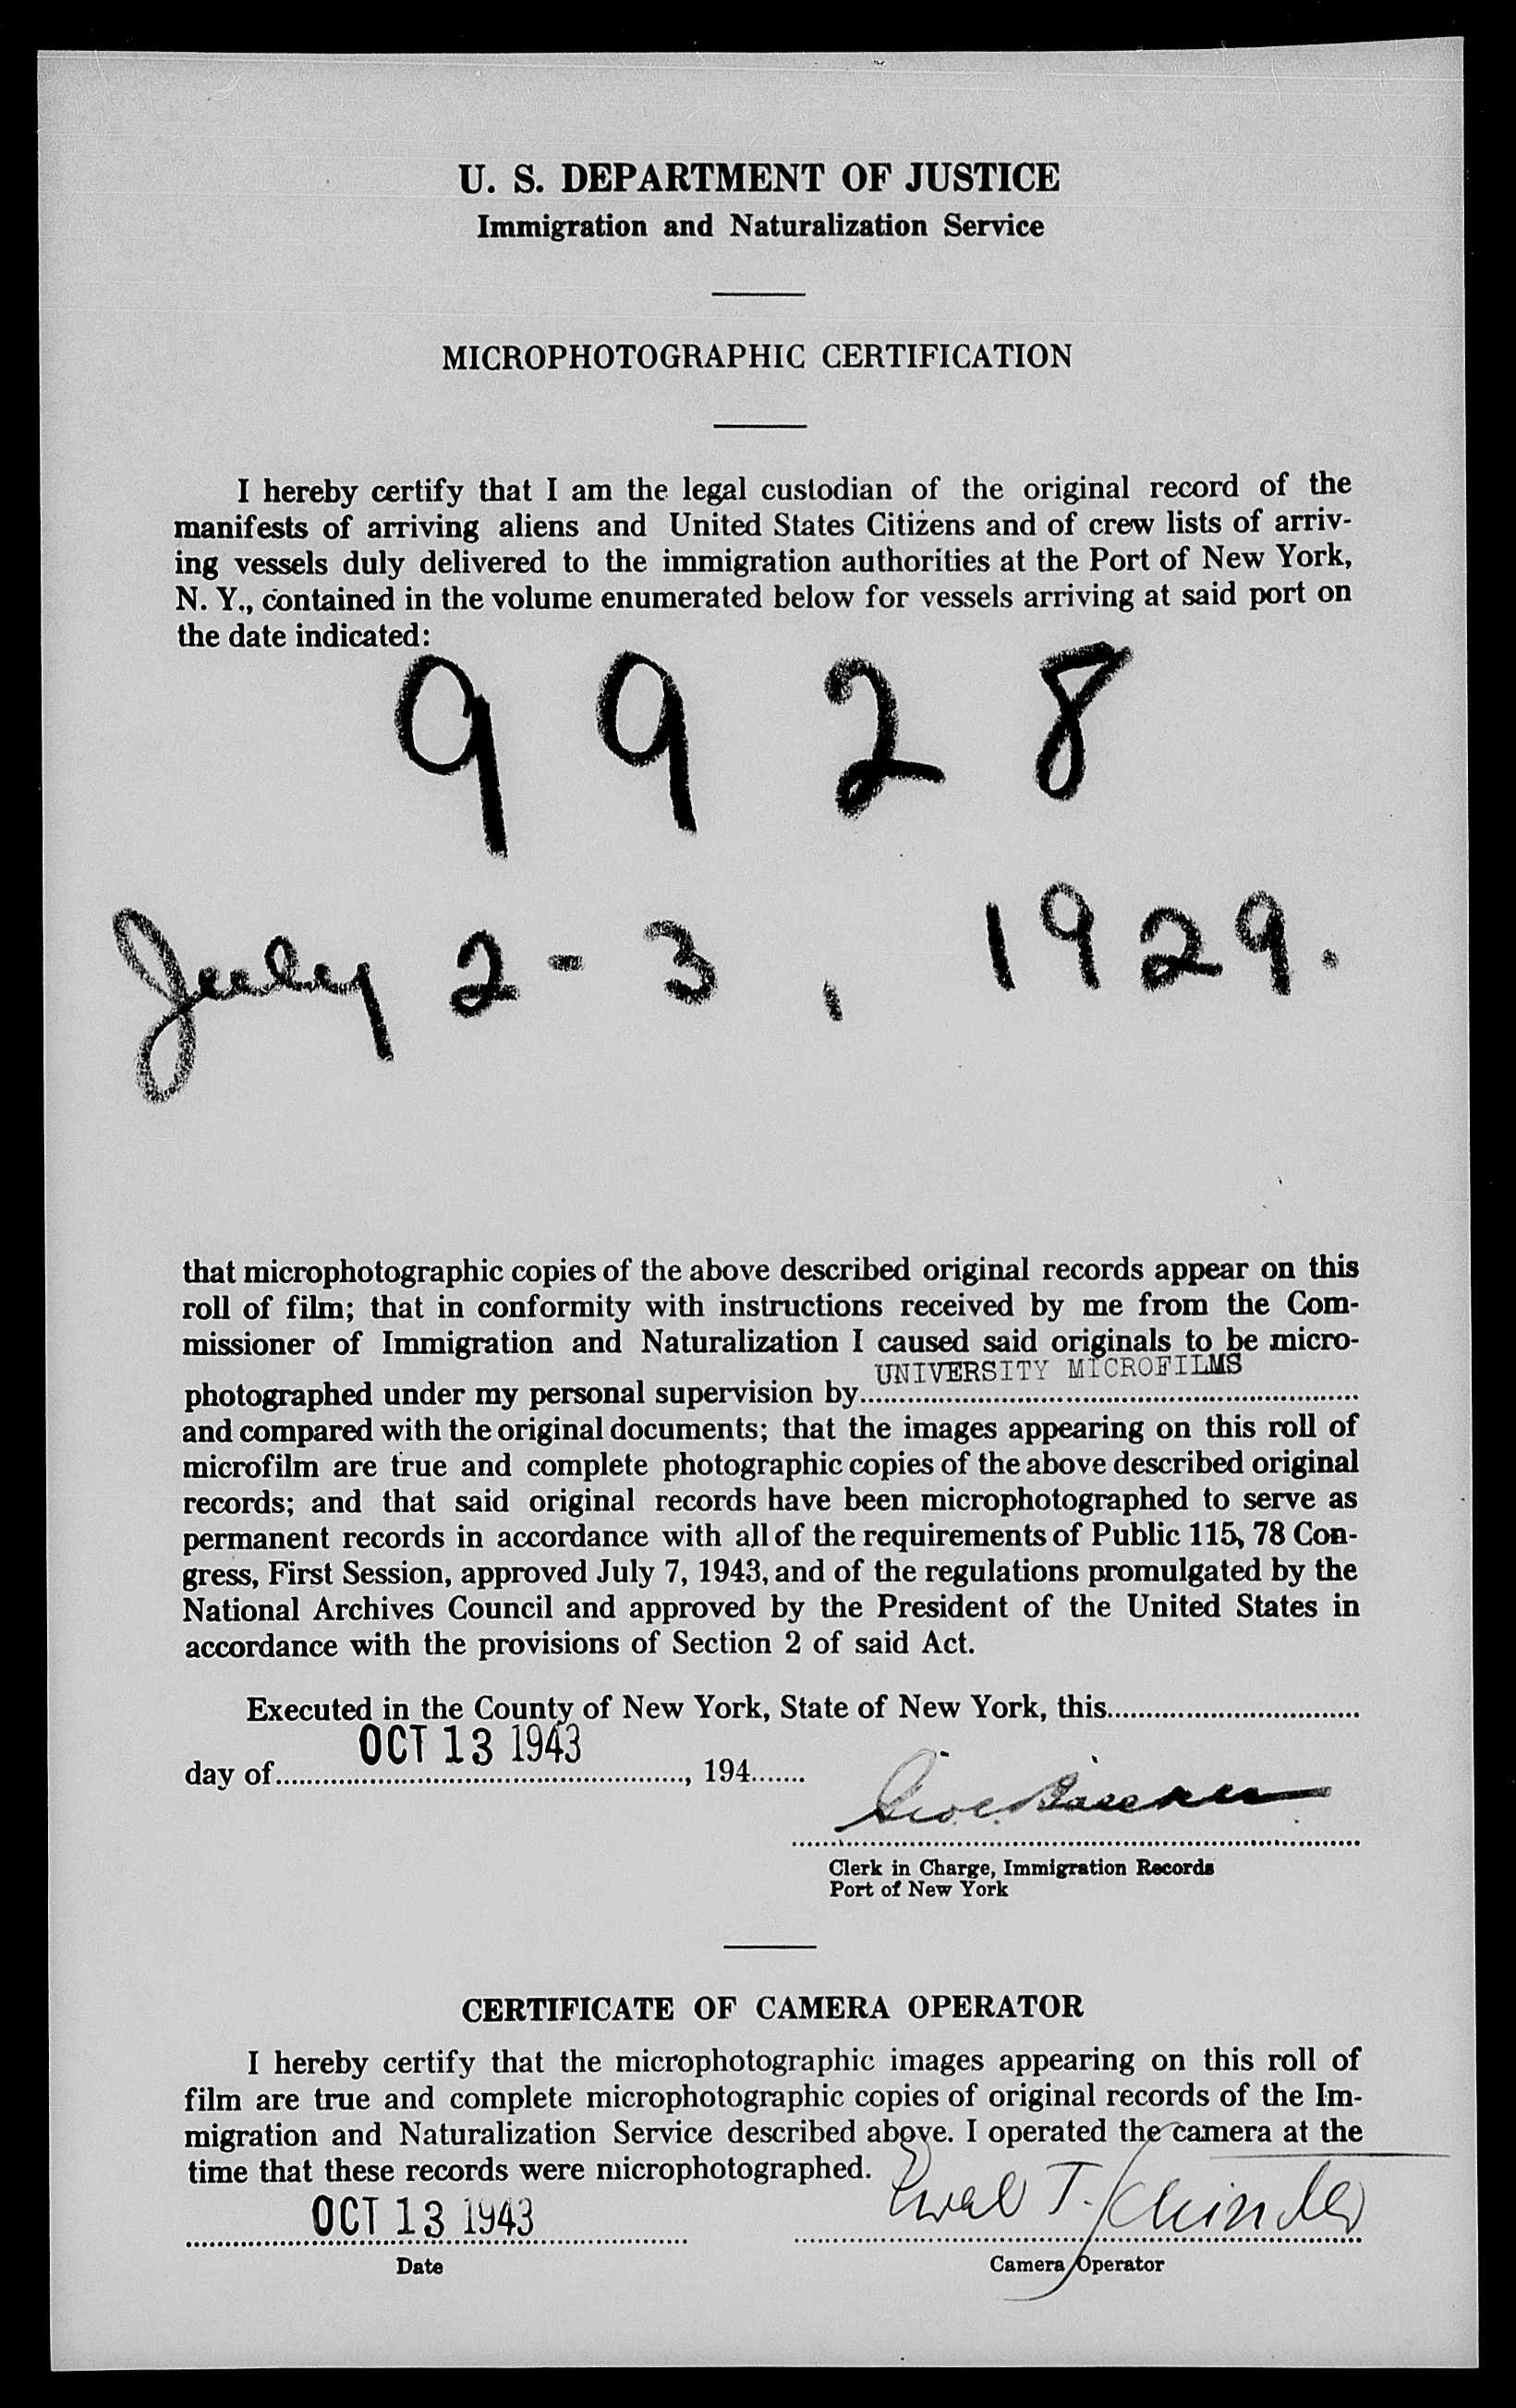 U. S. DEPARTMENT OF JUSTICE
Immigration and Naturalization Service
MICROPHOTOGRAPHIC CERTIFICATION
I hereby certify that I am the legal custodian of the original record of the
manifests of arriving aliens and United States Citizens and of crew lists of arriv-
ing vessels duly delivered to the immigration authorities at the Port of New York,
N. Y., contained in the volume enumerated below for vessels arriving at said port on
the date indicated:
9 9 2 8
July 2 - 3 , 1929.
that microphotographic copies of the above described original records appear on this
roll of film; that in conformity with instructions received by me from the Com-
missioner of Immigration and Naturalization I caused said originals to be micro-
photographed under my personal supervision by UNIVERSITY MICROFILMS
and compared with the original documents; that the images appearing on this roll of
microfilm are true and complete photographic copies of the above described original
records; and that said original records have been microphotographed to serve as
permanent records in accordance with all of the requirements of Public 115, 78 Con-
gress, First Session, approved July 7, 1943, and of the regulations promulgated by the
National Archives Council and approved by the President of the United States in
accordance with the provisions of Section 2 of said Act.
Executed in the County of New York, State of New York, this
day of OCT 13 1943, 194
Clerk in Charge, Immigration Records
Port of New York
CERTIFICATE OF CAMERA OPERATOR
I hereby certify that the microphotographic images appearing on this roll of
film are true and complete microphotographic copies of original records of the Im-
migration and Naturalization Service described above. I operated the camera at the
time that these records were microphotographed.
OCT 13 1943
Date
Camera Operator